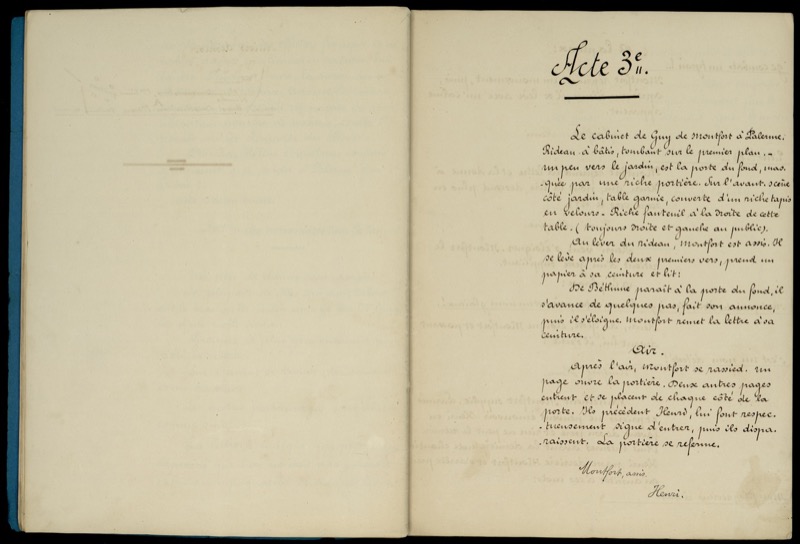 Acte 3e.
Le cabinet de Guy de Montfort à Palerme.
Rideau à bâtis, tombant sur le premier plan. -
un peu vers le jardin, est la porte du fond, mas-
-quée par une riche portière. Sur l'avant-scène
côté jardin, table garnie, couverte d'un riche tapis
en velours. Riche fauteuil à la droite de cette
table. (toujours droite et gauche au public).
Au lever du rideau, Montfort est assis. Il
se lève après les deux premiers vers, prend un
papier à sa ceinture et lit:
De Béthune parait à la porte du fond, il
s'avance de quelques pas, fait son annonce,
puis il s'éloigne. Montfort remet la lettre à sa
ceinture.
Air.
Après l'air, Montfort se rassied. Un
page ouvre la portière. Deux autres pages
entrent et se placent de chaque côté de la
porte. Ils précèdent Henri, lui font respec-
-tueusement signe d'entrer, puis ils dispa-
-raissent. La portière se referme.
Montfort, assis.
Henri.